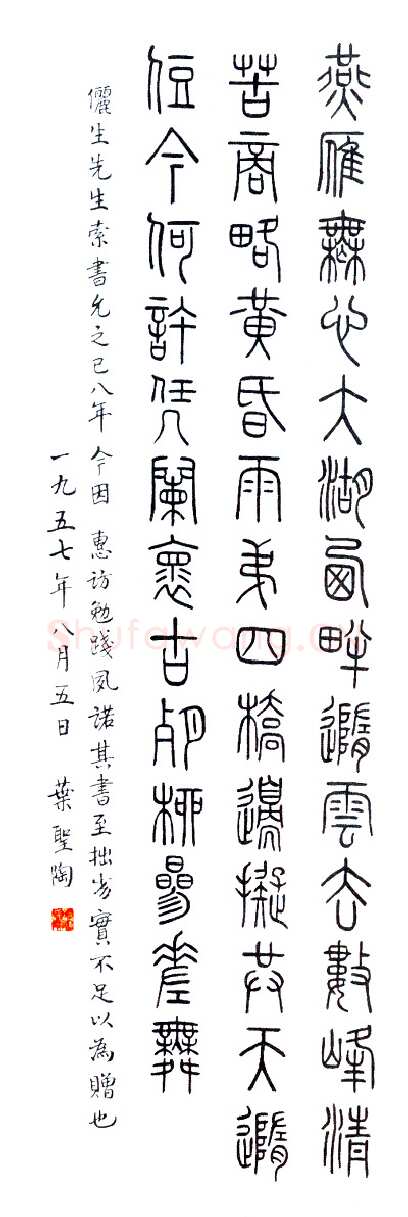 燕雁無心太湖西畔隨雲去數峰清
苦商略黃昏雨弟四橋邊擬共天隨
住今何許凭闌懷古殘柳參差舞
儷生先生索書允之已八年今因惠訪勉踐夙諾其書至拙劣實不足以為贈也
一九五七年八月五日 葉聖陶
Shufawang.cn